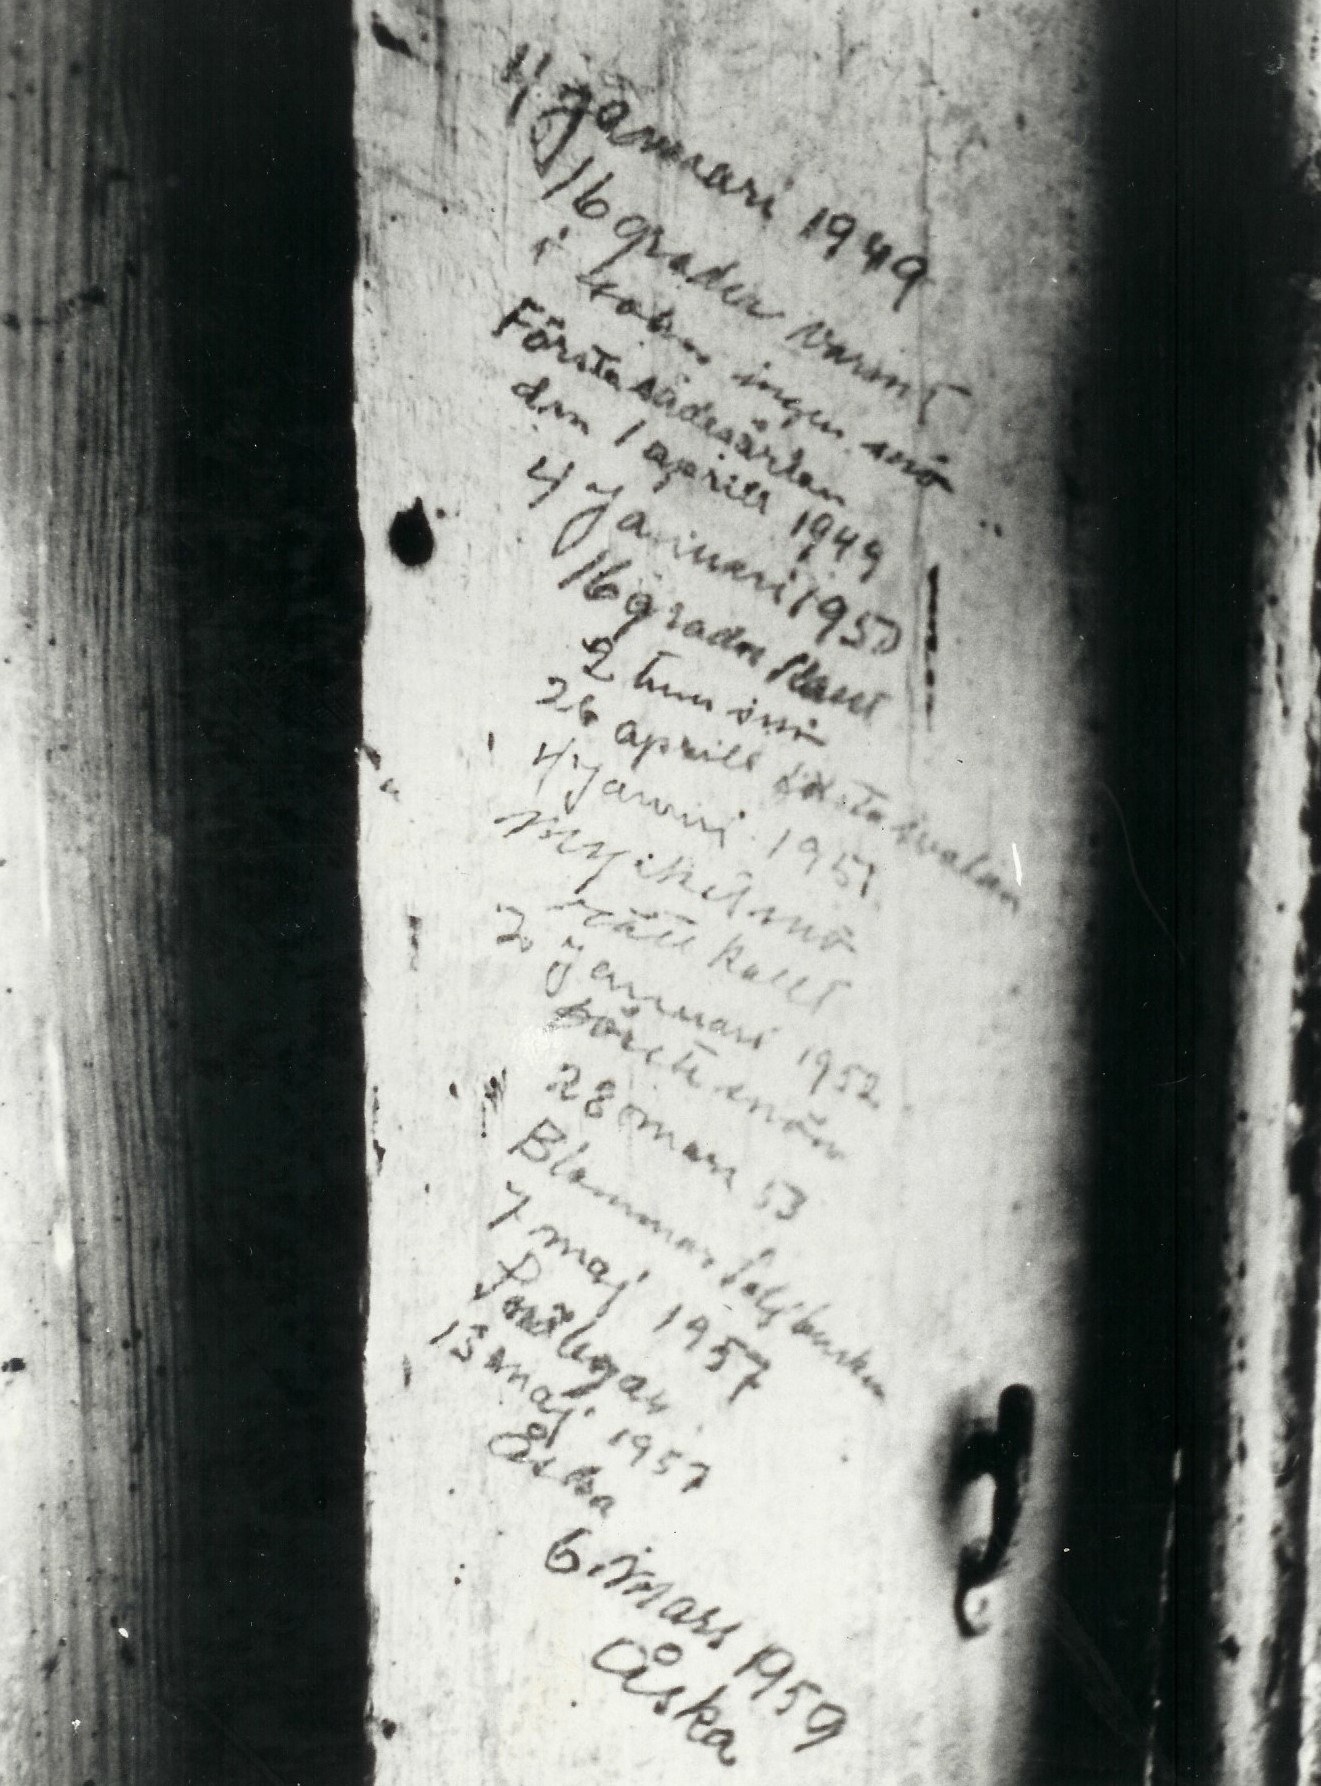 4 januari 1949
16 grader varmt
i solen ingen snö
Första sädesärlan
den 1 aprill 1949
4 januari 1950
16 grader kallt
2 tum snö
26 aprill första svalan
4 januari 1951
mycket snö
rätt kallt
2 januari 1952
snön
28 mars 53
Blommar
7 maj 1957
15 maj 1957
Åska
6 mars 1959
Åska